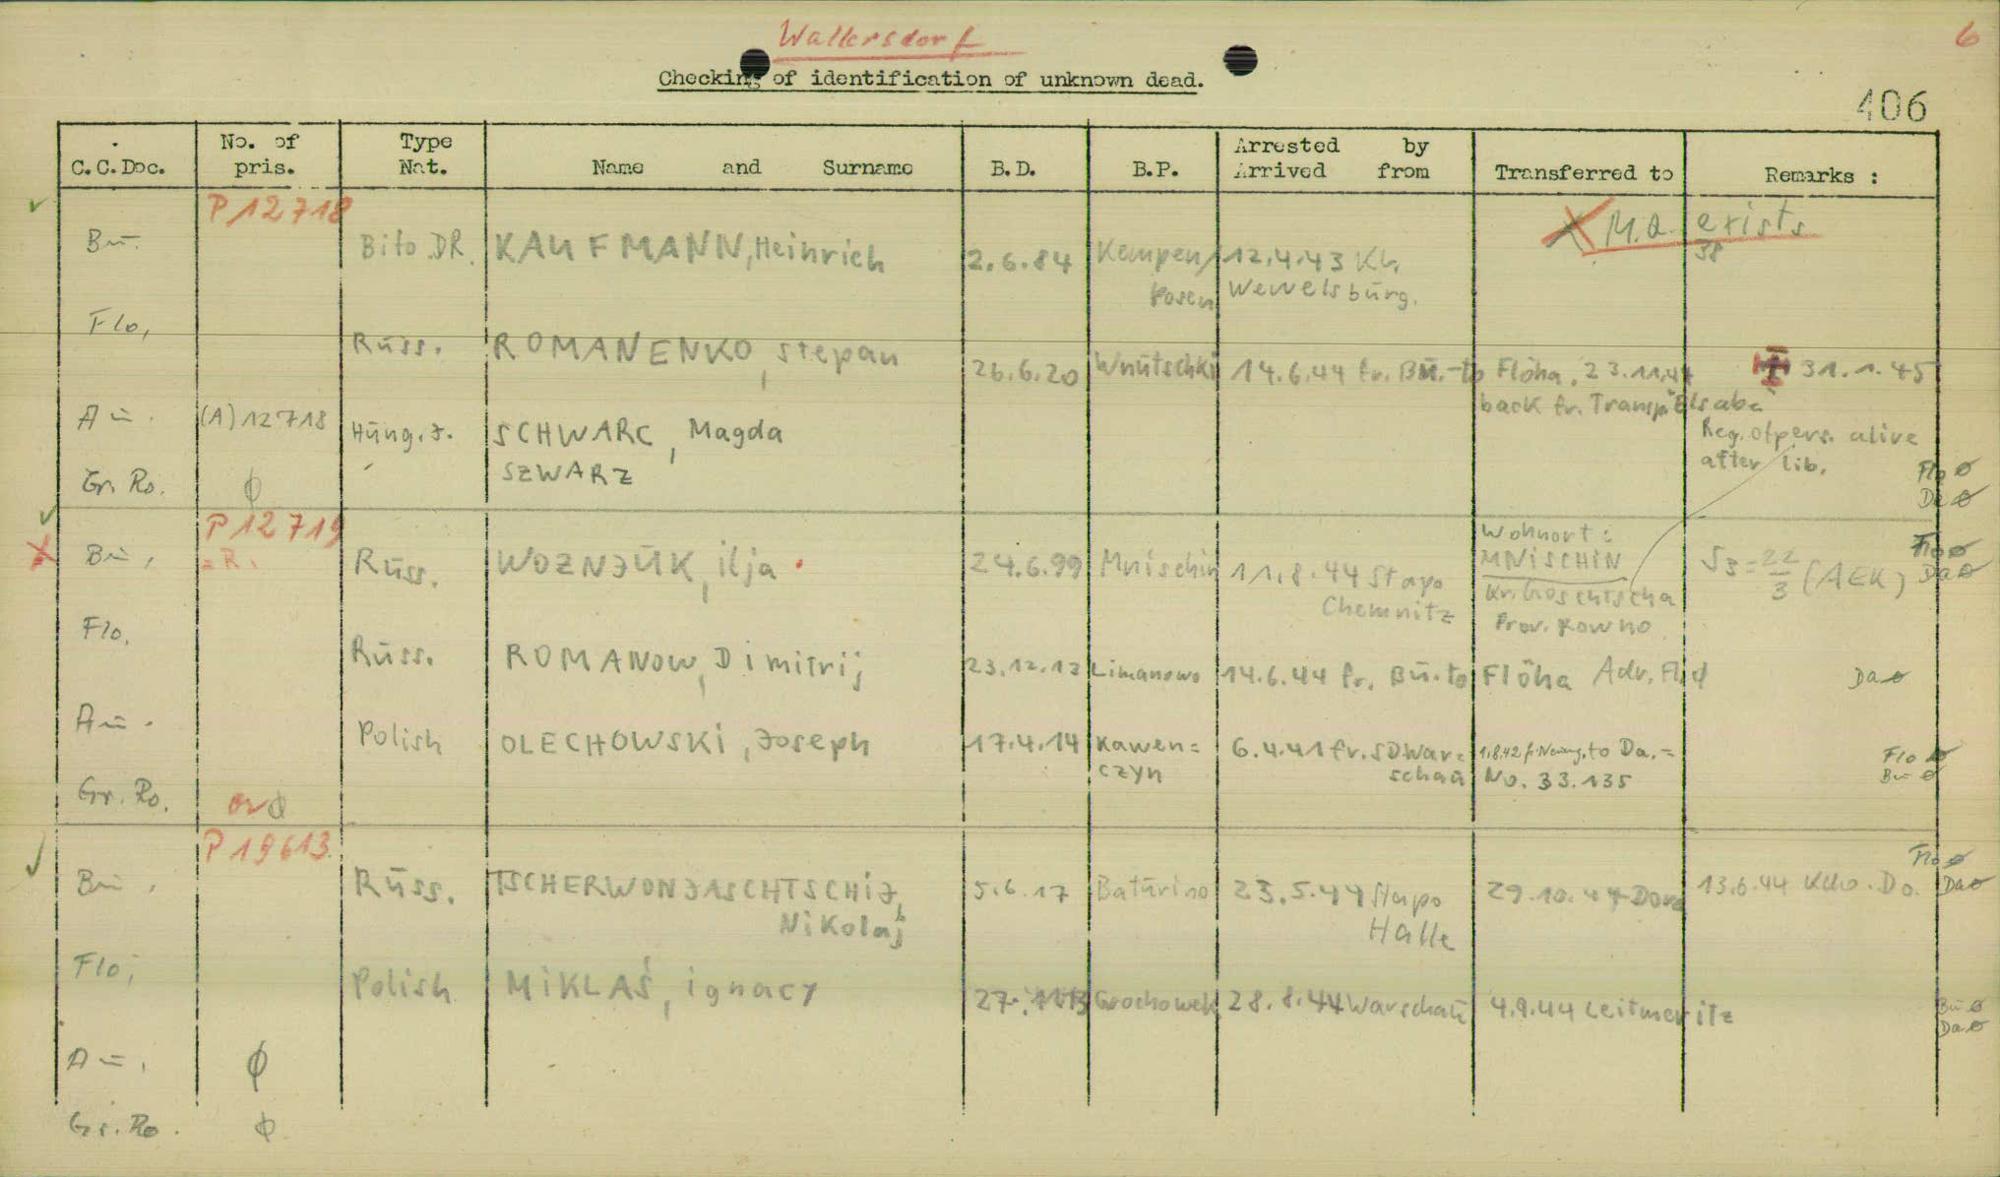 Wallersdorf
6
Checking of identification of unknown dead.
406
C.C.Doc. No. of pris. Type Nat. Name and Surname B.D. B.P. Arrested by Arrived from Transferred to Remarks :
P 12718
X M.a. exists
38
Bu. Bifo DR. KAUFMANN, Heinrich 2.6.84 Kempen/ 12.4.43 KL.
Posen Wewelsburg.
Flo,
Russ. ROMANENKO, stepan 26.6.20 Wnutschki 14.6.44 fr. Bu.-to Flöha, 23.11.44 31.1.45
back fr. Transp.
Au. (A) 12718 Hung. J. SCHWARC, Magda Reg. of pers. alive
SZWARZ after lib.
Gr. Ro. ϕ Flo ø
Da ø
P 12719
X Bu, = R. Russ. WOZNJUK, ilja 24.6.99 Mnischin 11.8.44 Stapo
Chemnitz
Wohnort:
MNiSCHiN
Kr. Goschtscha
Prov. Rowno
√3 = 22/3 (AEK) Flo ø
Da ø
Flo. Russ. ROMANOW, Dimitrij 23.12.12 Limanowo 14.6.44 fr. Bu. to Flöha Da ø
Au. Polish OLECHOWSKi, Joseph 17.4.14 Kawen= 6.4.41 fr. SD War= 1.8.42 f. Neueng. to Da.=
czyn schau No. 33.135
Flo ø
Bu ø
Gr. Ro. ϕ
P 19613
Flo ø
Bu, Russ. TSCHERWONJASCHTSCHiJ, 5.6.17 Baturino 23.5.44 Stapo 29.10.44 Dora 13.6.44 Kdo. Do. Da ø
Nikolaj Halle
Flo, Polish MiKLAŚ, ignacy 27. Grochowek 28.8.44 Warschau 4.9.44 Leitmeritz
Bu ø
Da ø
Au, ϕ
Gr. Ro. ϕ